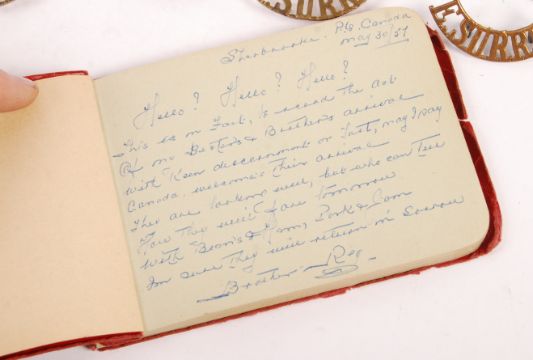 E.SURR
Sherbrooke. P.Q. Canada
May 30/57
Hello? Hello? Hello?
This is in Fact, to record the
Of my Sisters & Brothers arrival
with Keen discernment or Tact, may I say
Canada, welcomes their arrival
They are looking well, but who can tell
How they will fare tomorrow
with Beans & Ham, Pork & Jam
Im sure they will return in Sorrow
Brother Reg